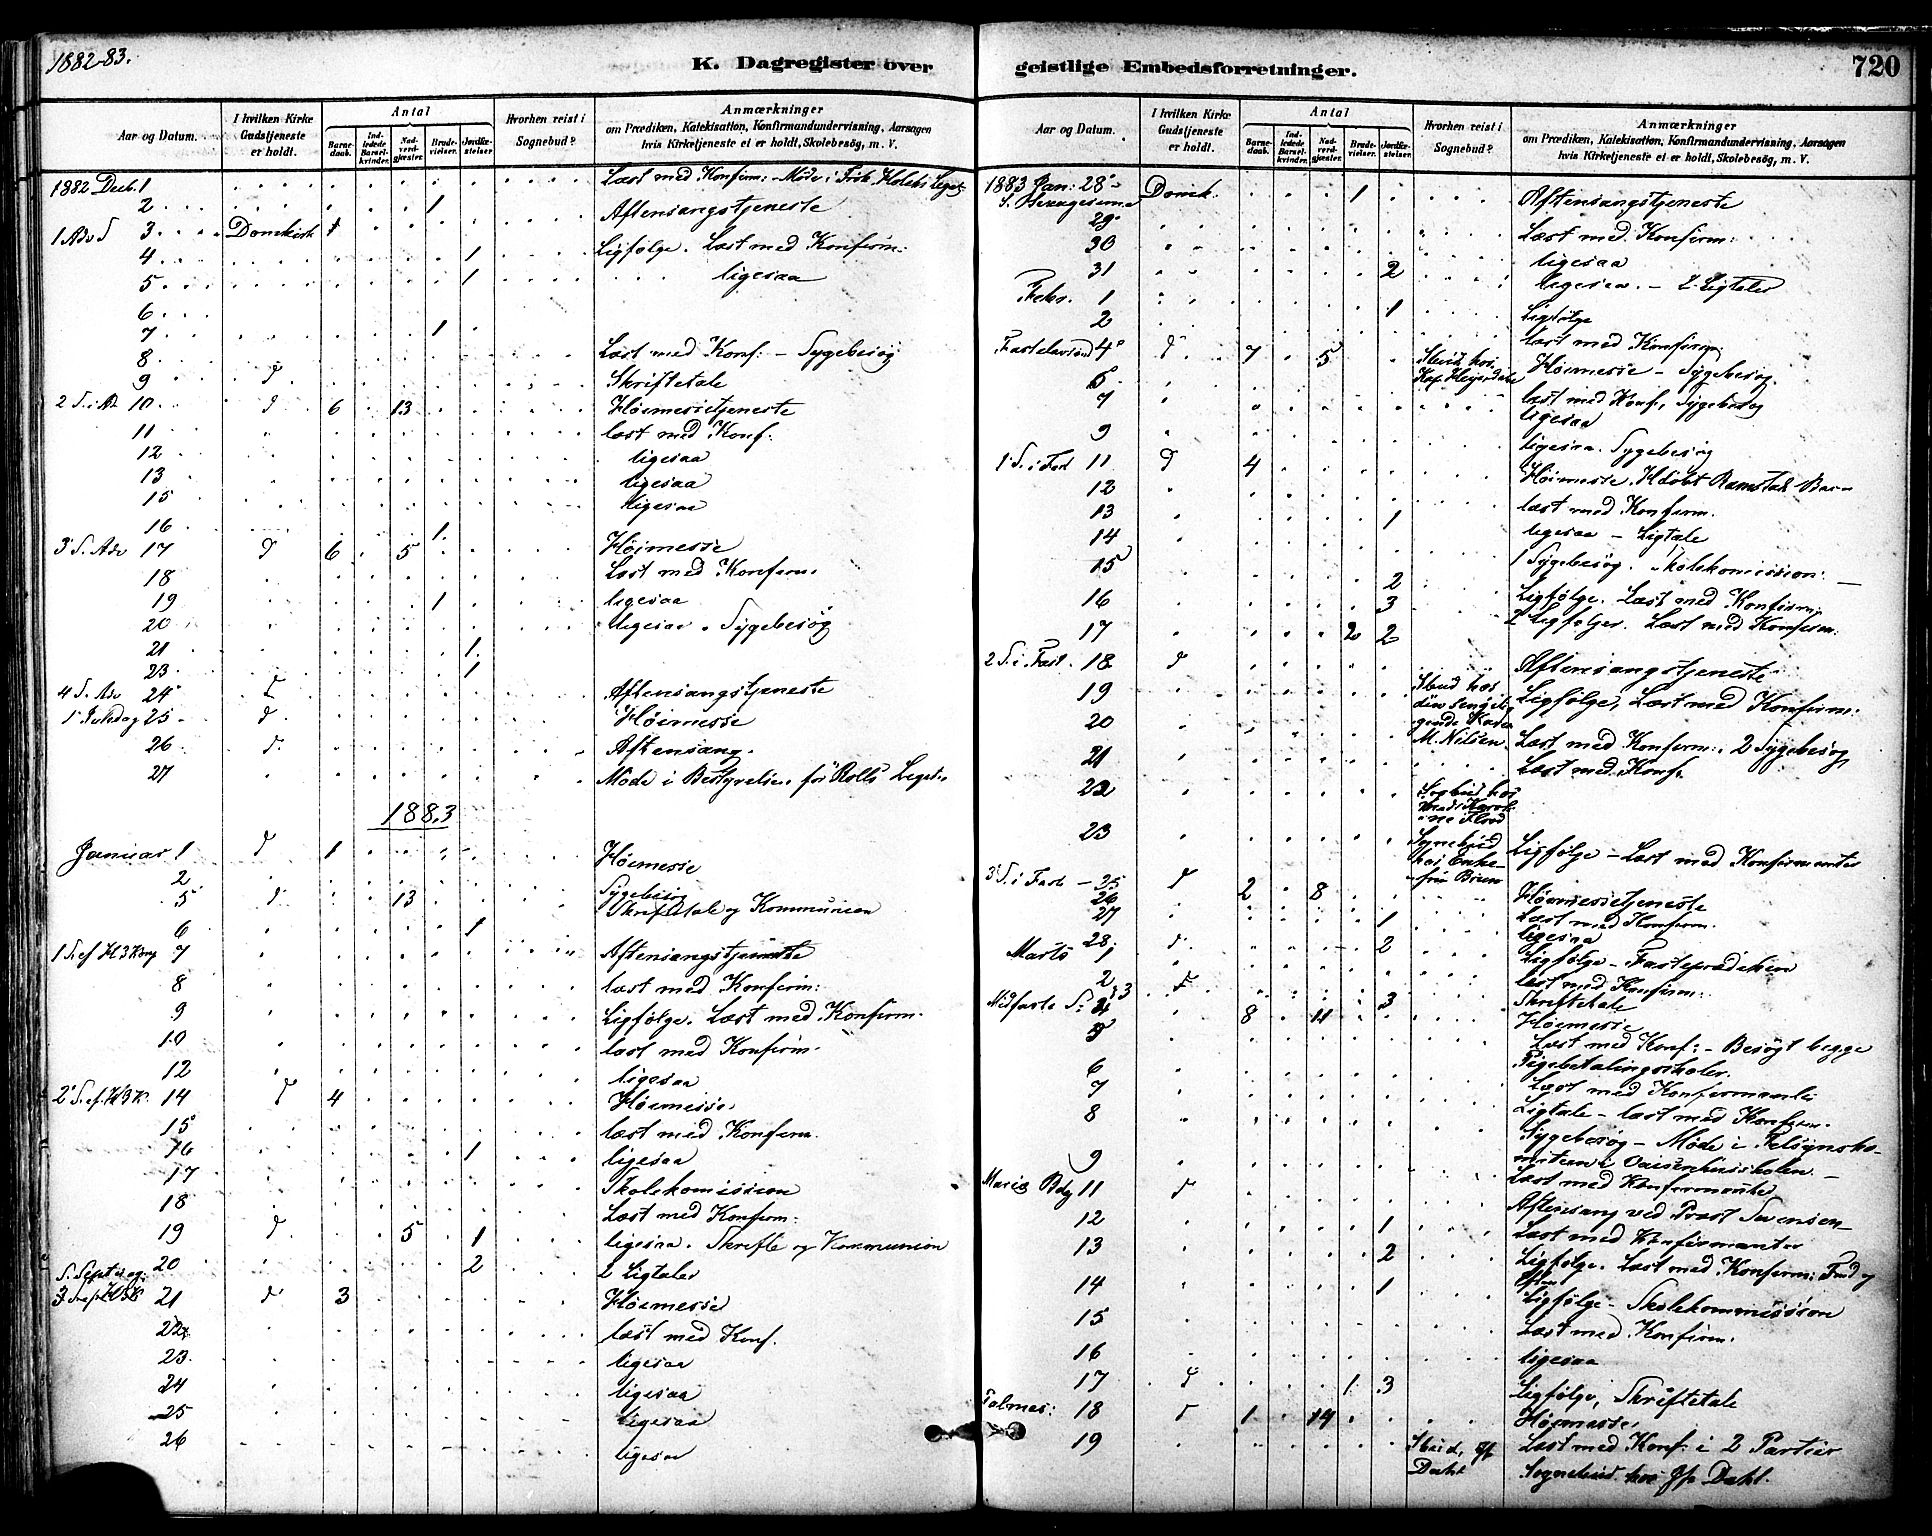 1882-83.
K. Dagregister over
Aar og Datum.
I hvilken Kirke Gudstjeneste er holdt.
Antal
Barnedaab.
Indledede Barselkvinder.
Nadverdgjæster.
Brudevielser.
Jordfæstelser.
Hvorhen reist i Sognebud?
Anmærkninger
om Prædiken, Katekisation, Konfirmandundervisning, Aarsagen
hvis Kirketjeneste ei er holdt, Skolebesøg, m. V.
1882 Decb. 1 Læst med Konfirm: Møde i
2 1
1 Adv S 3 Domkirk 1 Aftensangstjeneste
4 1 Ligfølge. Læst med Konfirm:
5 1 ligesaa
6
7 1
8 Læst med Konf: - Sygebesøg
9 d Skriftetale
2 S. i Ad 10 d 6 13 Høimessetjeneste
11 læst med Konf:
12 ligesaa
13 ligesaa
15 ligesaa
16 1
3 S. Adv 17 d 6 5 Høimesse
18 Læst med Konfirm.
19 1 ligesaa
20 ligesaa. Sygebesøg
21 1
23 1
4 S. Adv 24 d Aftensangstjeneste
1 Juledag 25 d Høimesse
26 d Aftensang.
27 Møde i Bestyrelsen for Rolls Leget.
1883
Januar 1 d 1 Høimesse
2 Sygebesøg
5 d 13 Skriftetale og Kommunion
6 1
1 S. ef H3Kong 7 Aftensangstjeneste
8 læst med Konfirm:
9 Ligfølge. Læst med Konfirm.
10 læst med Konfirm.
12 ligesaa
2 S. ef. H3K. 14 d 4 Høimesse
15 læst med Konfirm.
16 1 ligesaa
17 Skolekomission
18 Læst med Konfirm:
19 d 5 1 ligesaa. Skrifte og Kommunion
20 2 2 Ligtaler
S. Septuag:
21 d 3 Høimesse
22 læst med Konf.
23 ligesaa
24 ligesaa
25 ligesaa
26 ligesaa
geistlige Embedsforretninger.
720
Aar og Datum.
I hvilken Kirke Gudstjeneste er holdt.
Antal
Barnedaab.
Indledede Barselkvinder.
Nadverdgjæster.
Brudevielser.
Jordfæstelser.
Hvorhen reist i Sognebud?
Anmærkninger
om Prædiken, Katekisation, Konfirmandundervisning, Aarsagen
hvis Kirketjeneste ei er holdt, Skolebesøg, m. V.
1883 Jan: 28 Domk. 1 Aftensangstjeneste
S. Sexagesima
29 Læst med Konfirm:
30 ligesaa
31 2 ligesaa. - 2 Ligtaler
Febr. 1
2 1 Ligfølge
læst med Konfirm:
Fastelavnsd 4 d 7 5 Høimesse - Sygebesøg.
5 læst med Konf, Sygebesøg
7 ligesaa
9 ligesaa. Sygebesøg
1 S. i Fast 11 d 4 Høimesse.
12 læst med Konfirm.
13 1 ligesaa - Ligtale
14
15 2 1 Sygebesøg. Skolekomission:
16 3 Ligfølge. Læst med Konfirm:
17 2 2 2 Ligfølger. Læst med Konfirm:
2 S. i Fast. 18 d Aftensangstjeneste
19 Ligfølge, Læst med Konfirm:
20 M. Nilsen Læst med Konfirm:, 2 Sygebesøg
21 Læst med Konf.
22
23 Sognebud hos Enkefru Bruun Ligfølge - Læst med Konfirmanter
3 S. i Fast - 25 d 2 8 Høimessetjeneste
26 Læst med Konfirm.
27 1 ligesaa
28 d 2 Ligfølge - Fasteprædiken
Marts 1 læst med Konfirm:
2 3 d 3 Skriftetale
Midfaste S. 4 8 11 Høimesse
5 Læst med Konf: - Besøgt begge
Pigebetalingsskoler.
6 Læst med Konfirmanter
7 Ligtale - læst med Konfirm.
8 Sygebesøg - Møde i Tilsynsko-
miteen i Vaisenhusskolen. -
9 Læst med Konfirmanter
Mariæ Bdg 11 d Aftensang ved Prost Svensen
12 1 Læst med Konfirmanter
13 2 Ligfølge. Læst med Konfirm:
14 1 Ligfølge - Skolekommission
15 Læst med Konfirm.
16 ligesaa
17 d 1 3 Ligfølge, Skriftetale
Palmes: 18 d 1 14 Høimesse.
19 Læst med Konf: i 2 Partier
Dahl Sognebud hos Gp Dahl.